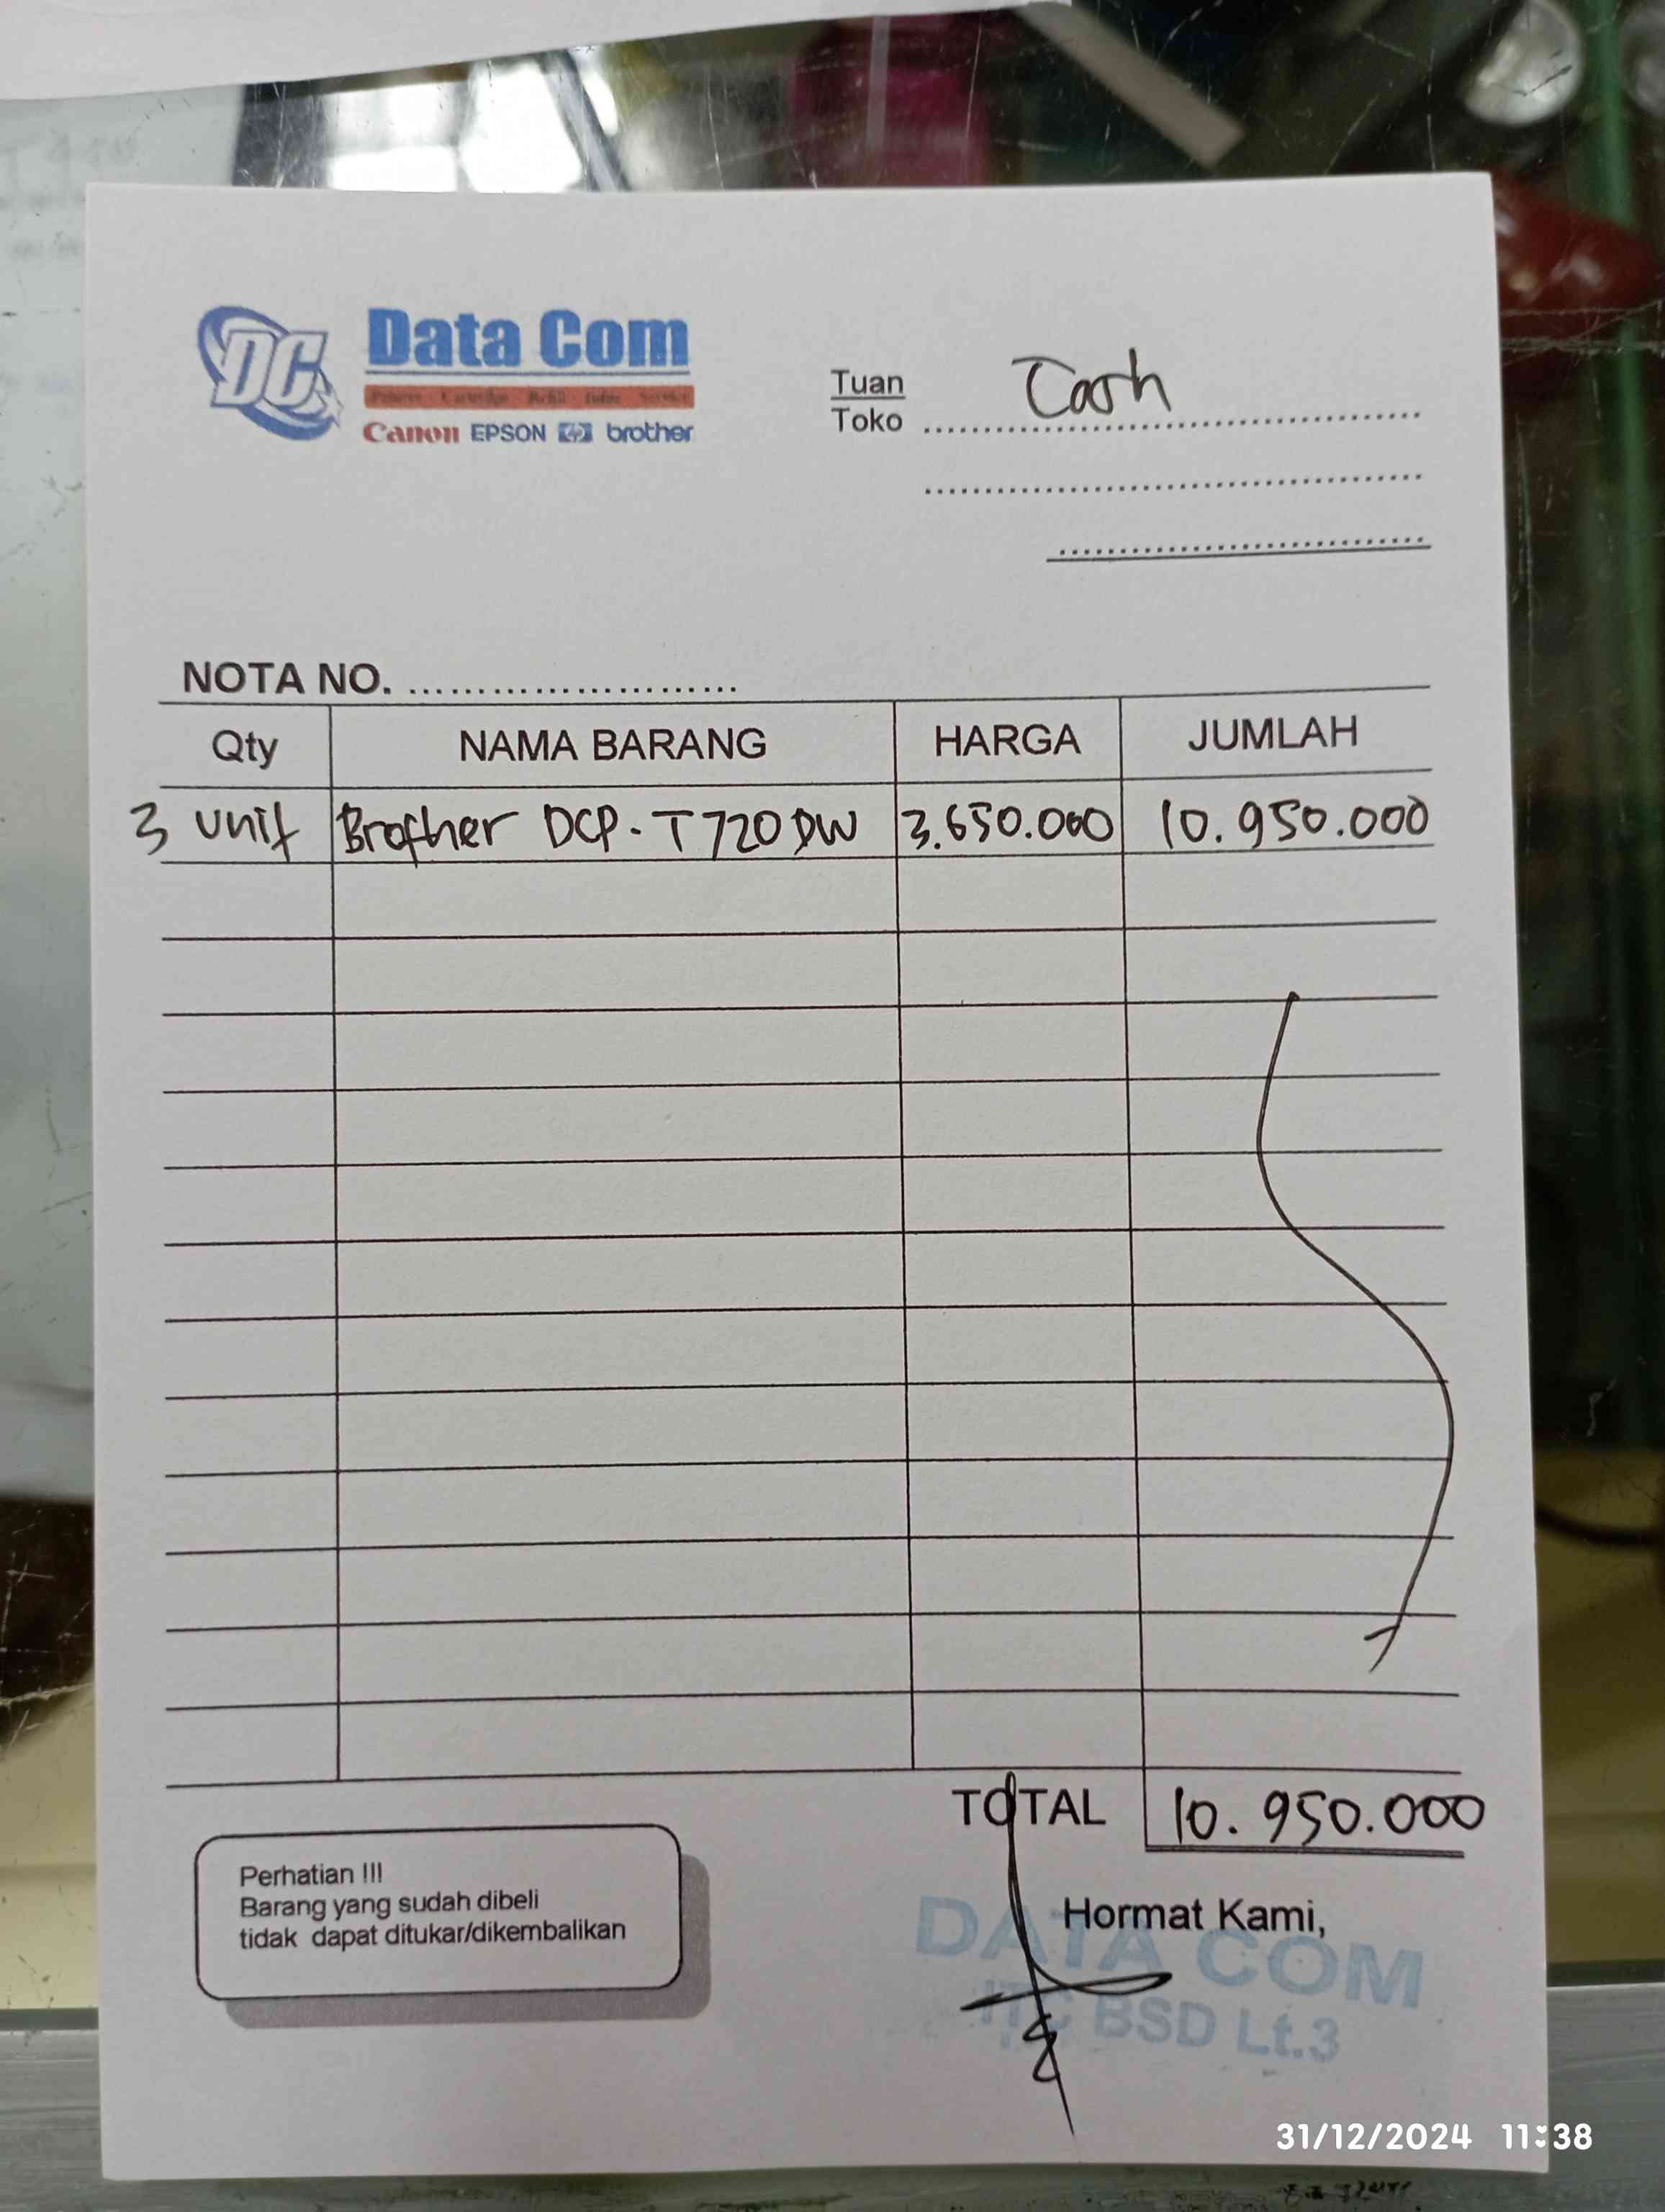 DC
Data Com
Printer Cartridge Refill Toner Service
Canon EPSON hp brother
Tuan Cash
Toko ........................................
........................................
........................................
NOTA NO. ........................
Qty NAMA BARANG HARGA JUMLAH
3 unit Brother DCP-T720DW 3.650.000 10.950.000
TOTAL 10.950.000
Perhatian !!!
Barang yang sudah dibeli
tidak dapat ditukar/dikembalikan
Hormat Kami,
DATA COM
ITC BSD Lt.3
31/12/2024 11:38